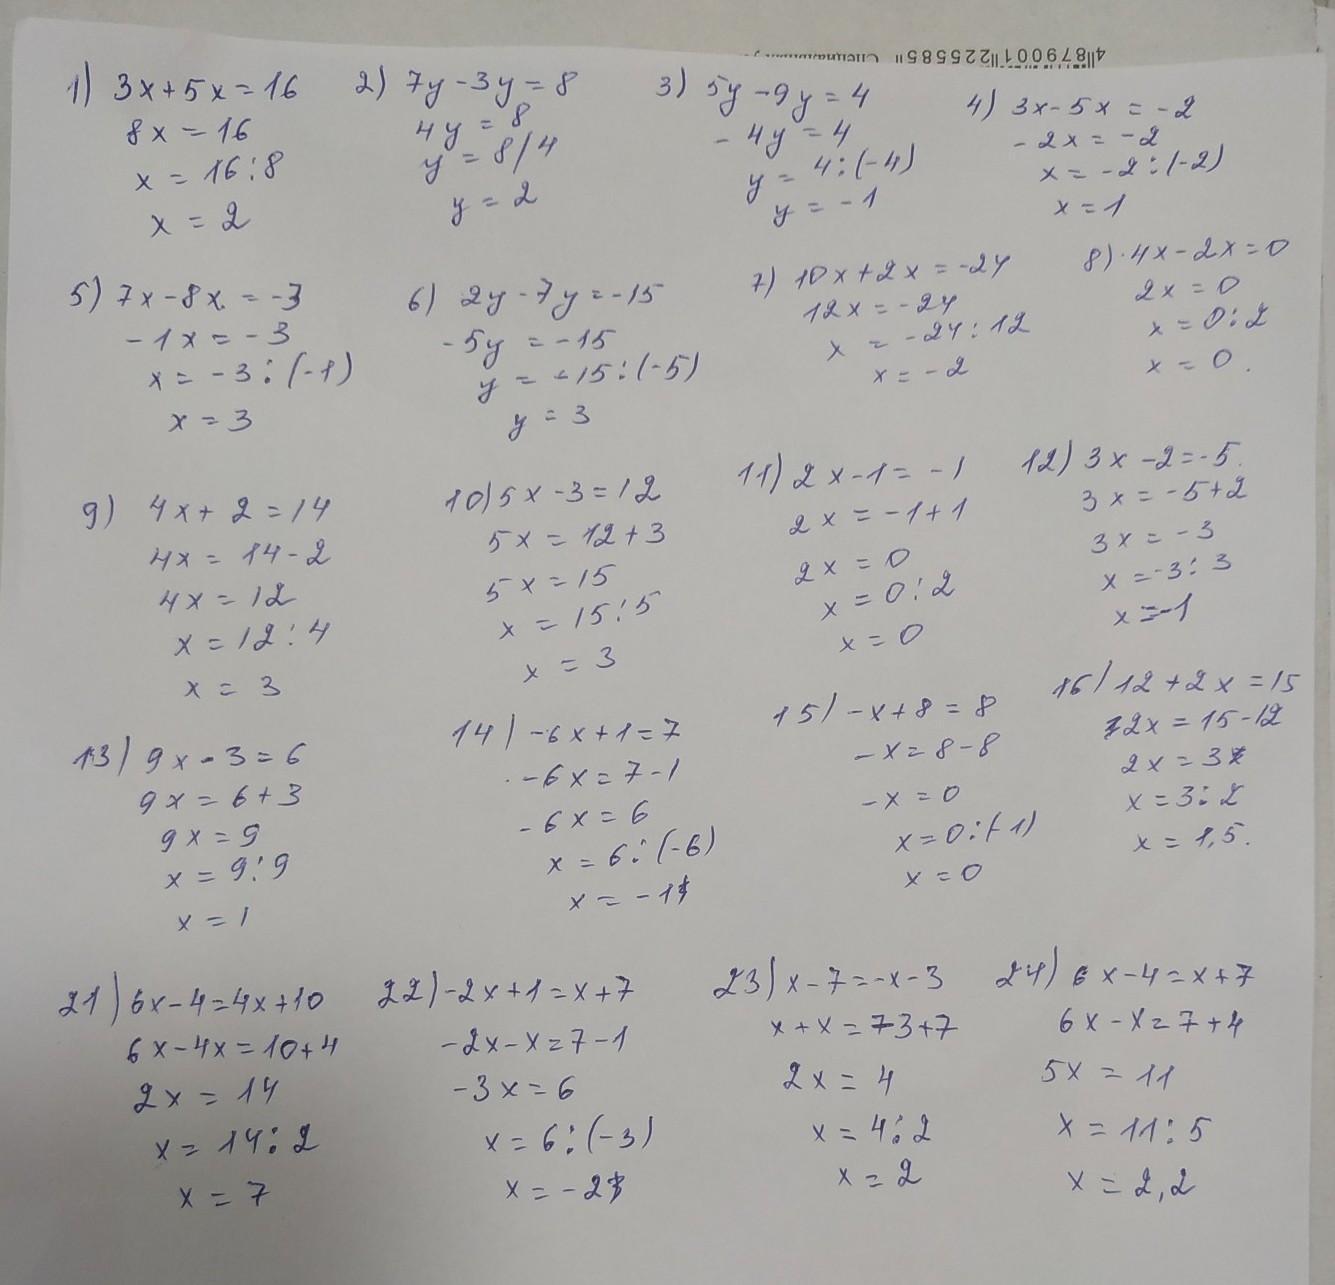 4"879001"225585" Специальн
1) 3x+5x=16
8x=16
x=16:8
x=2
2) 7y-3y=8
4y=8
y=8/4
y=2
3) 5y-9y=4
-4y=4
y=4:(-4)
y=-1
4) 3x-5x=-2
-2x=-2
x=-2:(-2)
x=1
5) 7x-8x=-3
-1x=-3
x=-3:(-1)
x=3
6) 2y-7y=-15
-5y=-15
y=-15:(-5)
y=3
7) 10x+2x=-24
12x=-24
x=-24:12
x=-2
8) 4x-2x=0
2x=0
x=0:2
x=0.
9) 4x+2=14
4x=14-2
4x=12
x=12:4
x=3
10) 5x-3=12
5x=12+3
5x=15
x=15:5
x=3
11) 2x-1=-1
2x=-1+1
2x=0
x=0:2
x=0
12) 3x-2=-5.
3x=-5+2
3x=-3
x=-3:3
x=-1
13) 9x-3=6
9x=6+3
9x=9
x=9:9
x=1
14) -6x+1=7
-6x=7-1
-6x=6
x=6:(-6)
x=-1
15) -x+8=8
-x=8-8
-x=0
x=0:(-1)
x=0
16) 12+2x=15
2x=15-12
2x=3
x=3:2
x=1,5.
21) 6x-4=4x+10
6x-4x=10+4
2x=14
x=14:2
x=7
22) -2x+1=x+7
-2x-x=7-1
-3x=6
x=6:(-3)
x=-2
23) x-7=-x-3
x+x=-3+7
2x=4
x=4:2
x=2
24) 6x-4=x+7
6x-x=7+4
5x=11
x=11:5
x=2,2